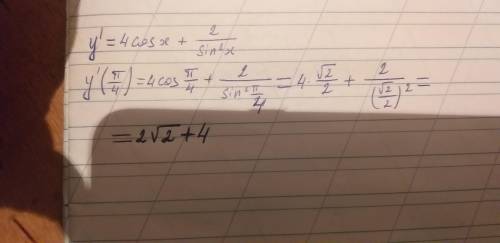 y' = 4cosx + 2/sin²x
y'(π/4) = 4cos π/4 + 2/sin² π/4 = 4·√2/2 + 2/(√2/2)² =
= 2√2 + 4